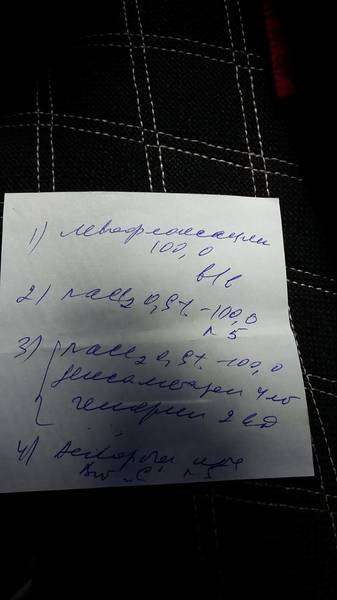 1) Левофлоксацин
100,0
в/в
2) NaCl 0,9% - 100,0
N 5
3) NaCl 0,9% - 100,0
Дексаметазон 4 мг
гепарин 2 ед
4) Аскорб
Вит "С" N 5